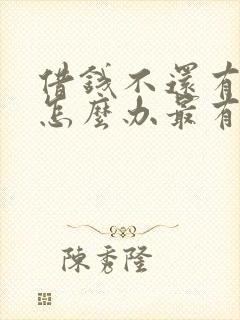 借錢不還有
怎麼办最有
陳秀隆